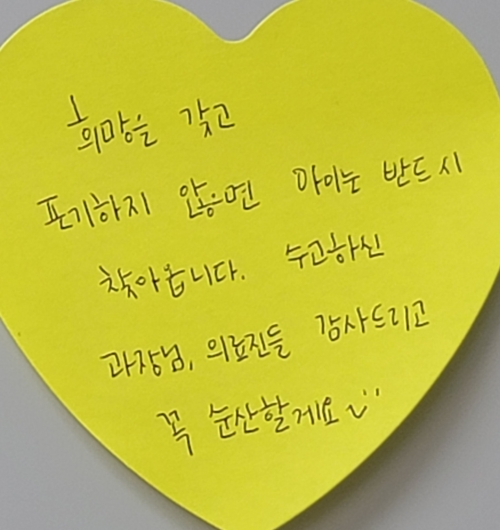 희망을 갖고
포기하지 않으면 아이는 반드시
찾아옵니다. 수고하신
과장님, 의료진들 감사드리고
꼭 순산할게요 ~¨